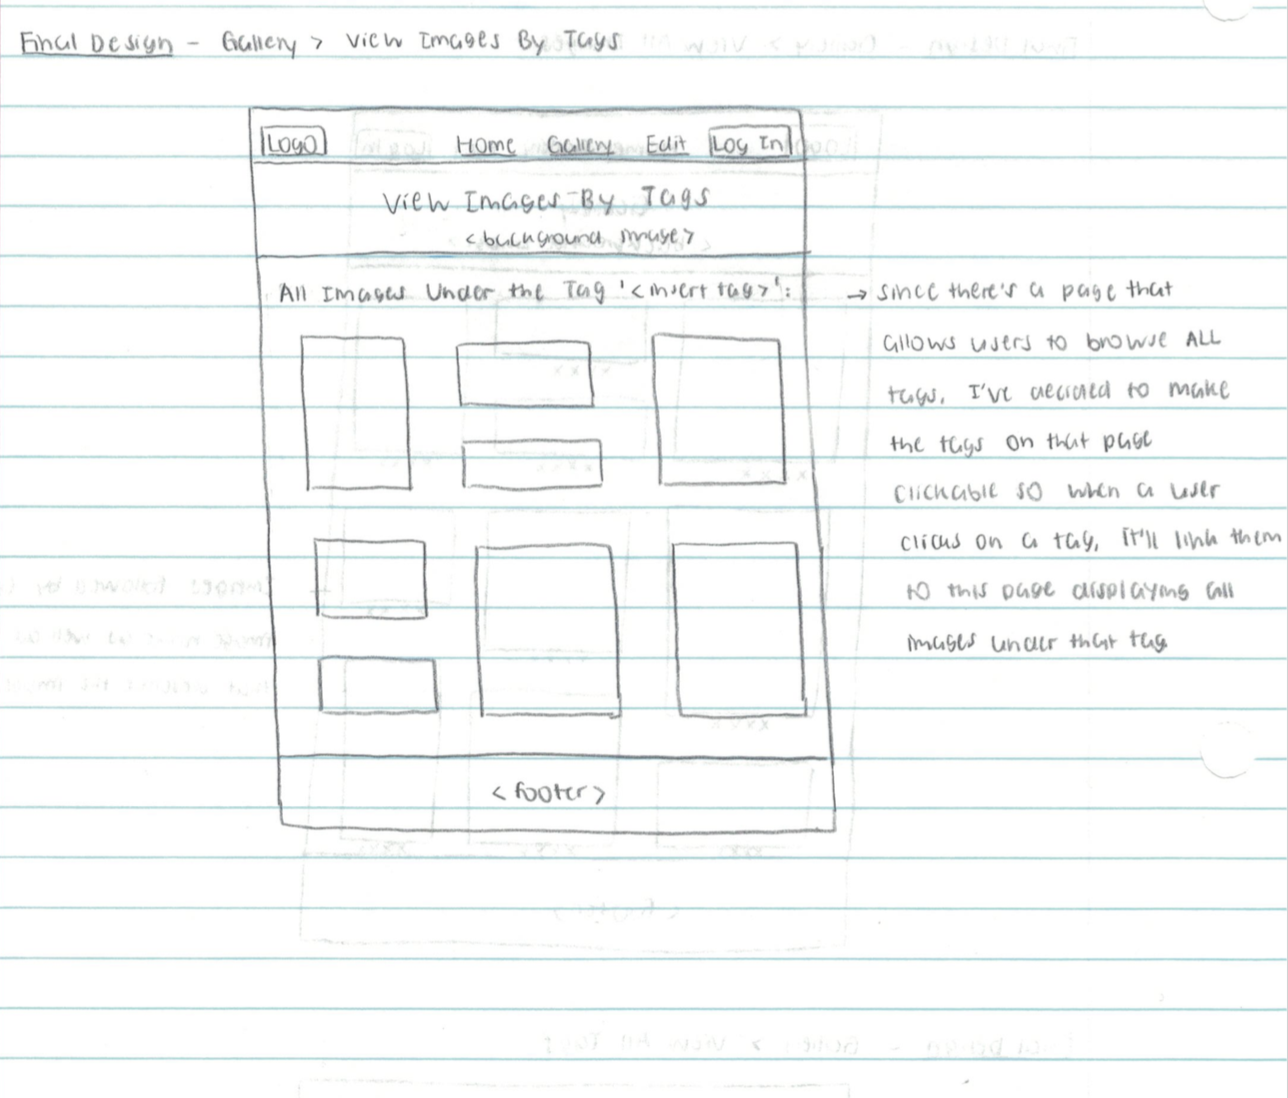 Final Design - Gallery > View Images By Tags
Logo Home Gallery Edit Log In
View Images By Tags
<background image>
All Images Under the Tag '<insert tag>':
→ since there's a page that
allows users to browse ALL
tags, I've decided to make
the tags on that page
clickable so when a user
clicks on a tag, it'll link them
to this page displaying all
images under that tag
<footer>